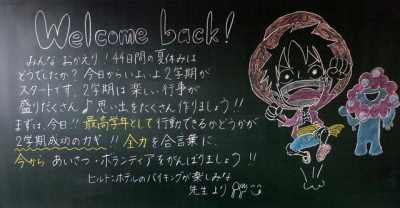 Welcome back!
みんなおかえり！44日間の夏休みは
どうでしたか？今日からいよいよ2学期が
スタートです。2学期は楽しい行事が
盛りだくさん♪思い出をたくさん作りましょう!!
まずは、今日!!最高学年として行動できるかどうかが
2学期成功のカギ!!全力を合言葉に、
今からあいさつ・ボランティアをがんばりましょう!!
ヒルトンホテルのバイキングが楽しみな
先生より